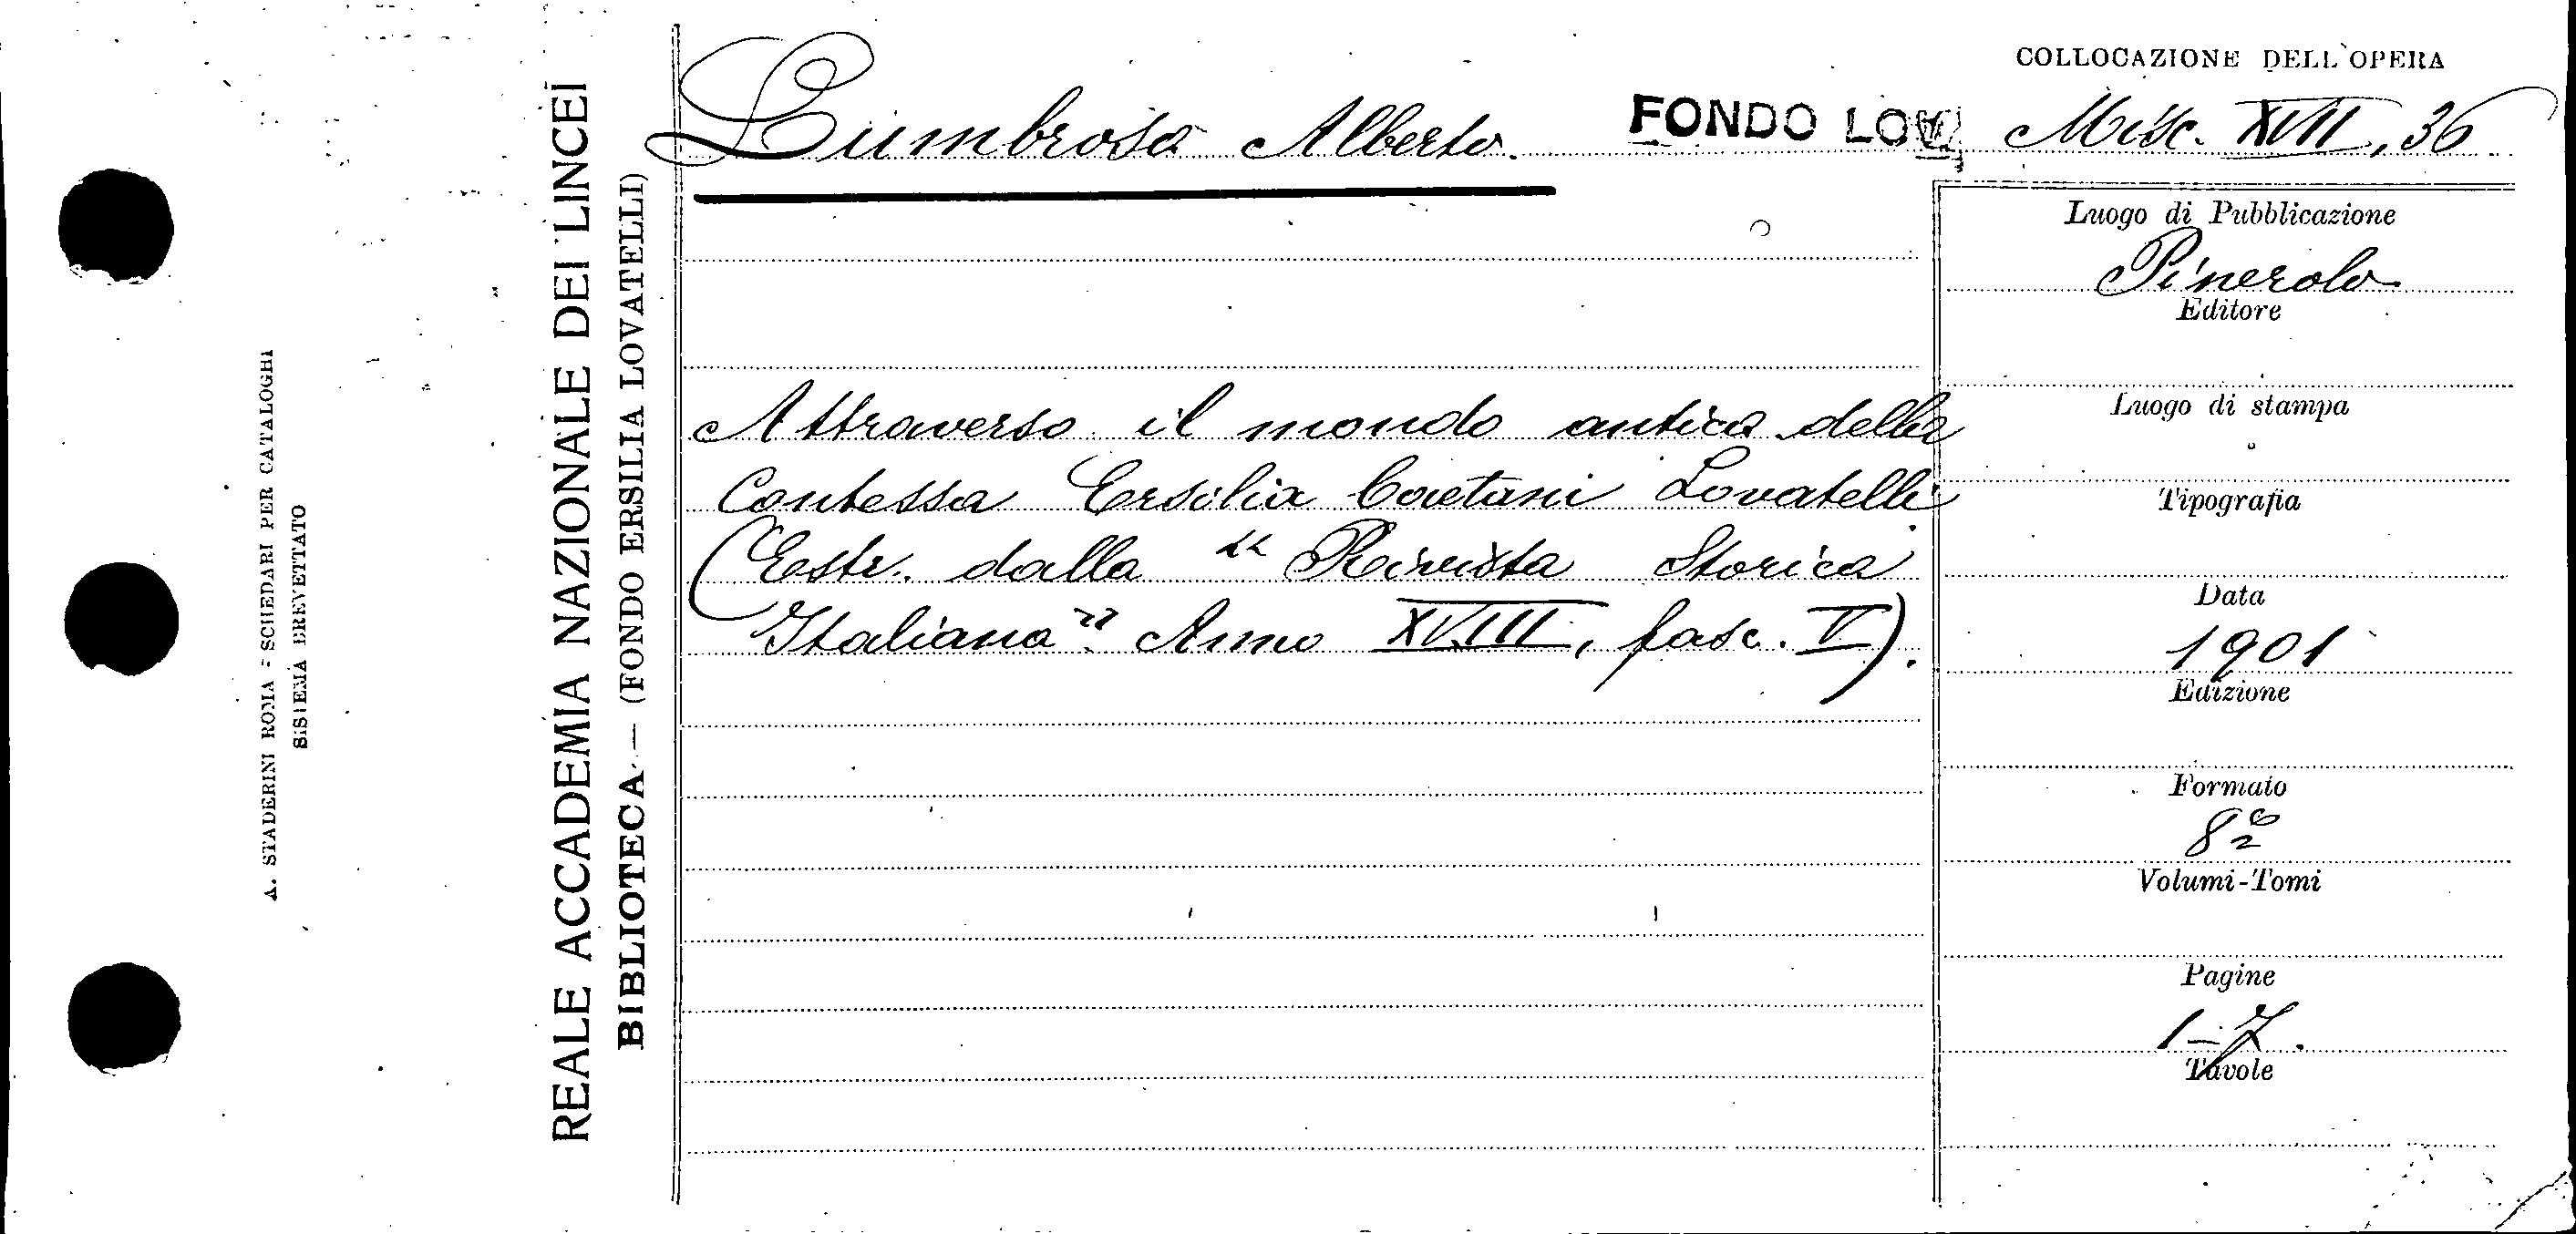 COLLOCAZIONE DELL'OPERA
Lumbroso Alberto.
FONDO LOV.
Misc. XVII, 36
Attraverso il mondo antico della
Contessa Ersilia Caetani Lovatelli
(Estr. dalla "Rivista Storica
Italiana" Anno XVIII, fasc. V).
Luogo di Pubblicazione
Pinerolo
Editore
Luogo di stampa
Tipografia
Data
1901
Edizione
Formato
8º
Volumi-Tomi
Pagine
1-7.
Tavole
REALE ACCADEMIA NAZIONALE DEI LINCEI
BIBLIOTECA — (FONDO ERSILIA LOVATELLI)
A. STADERINI ROMA - SCHEDARI PER CATALOGHI
SISTEMA BREVETTATO